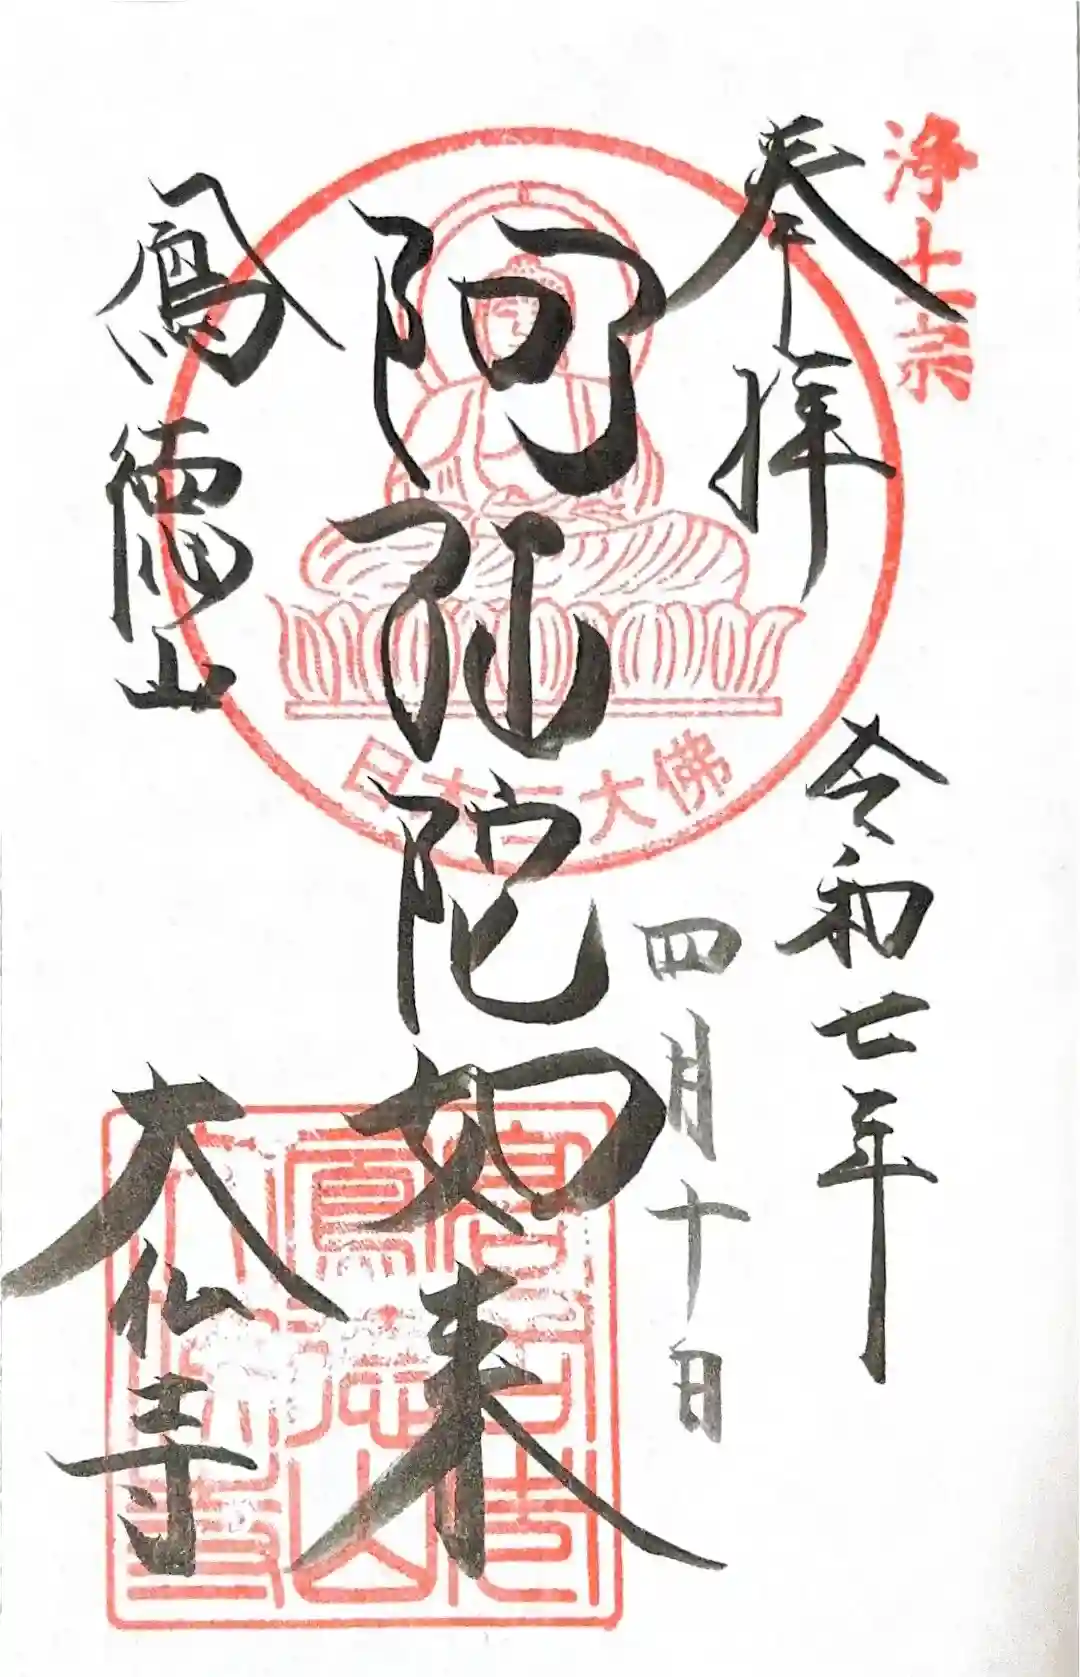 浄土宗
奉拝
令和七年
四月十日
阿弥陀如来
日本三大佛
鳳徳山
大仏寺
鳳徳山
大佛寺